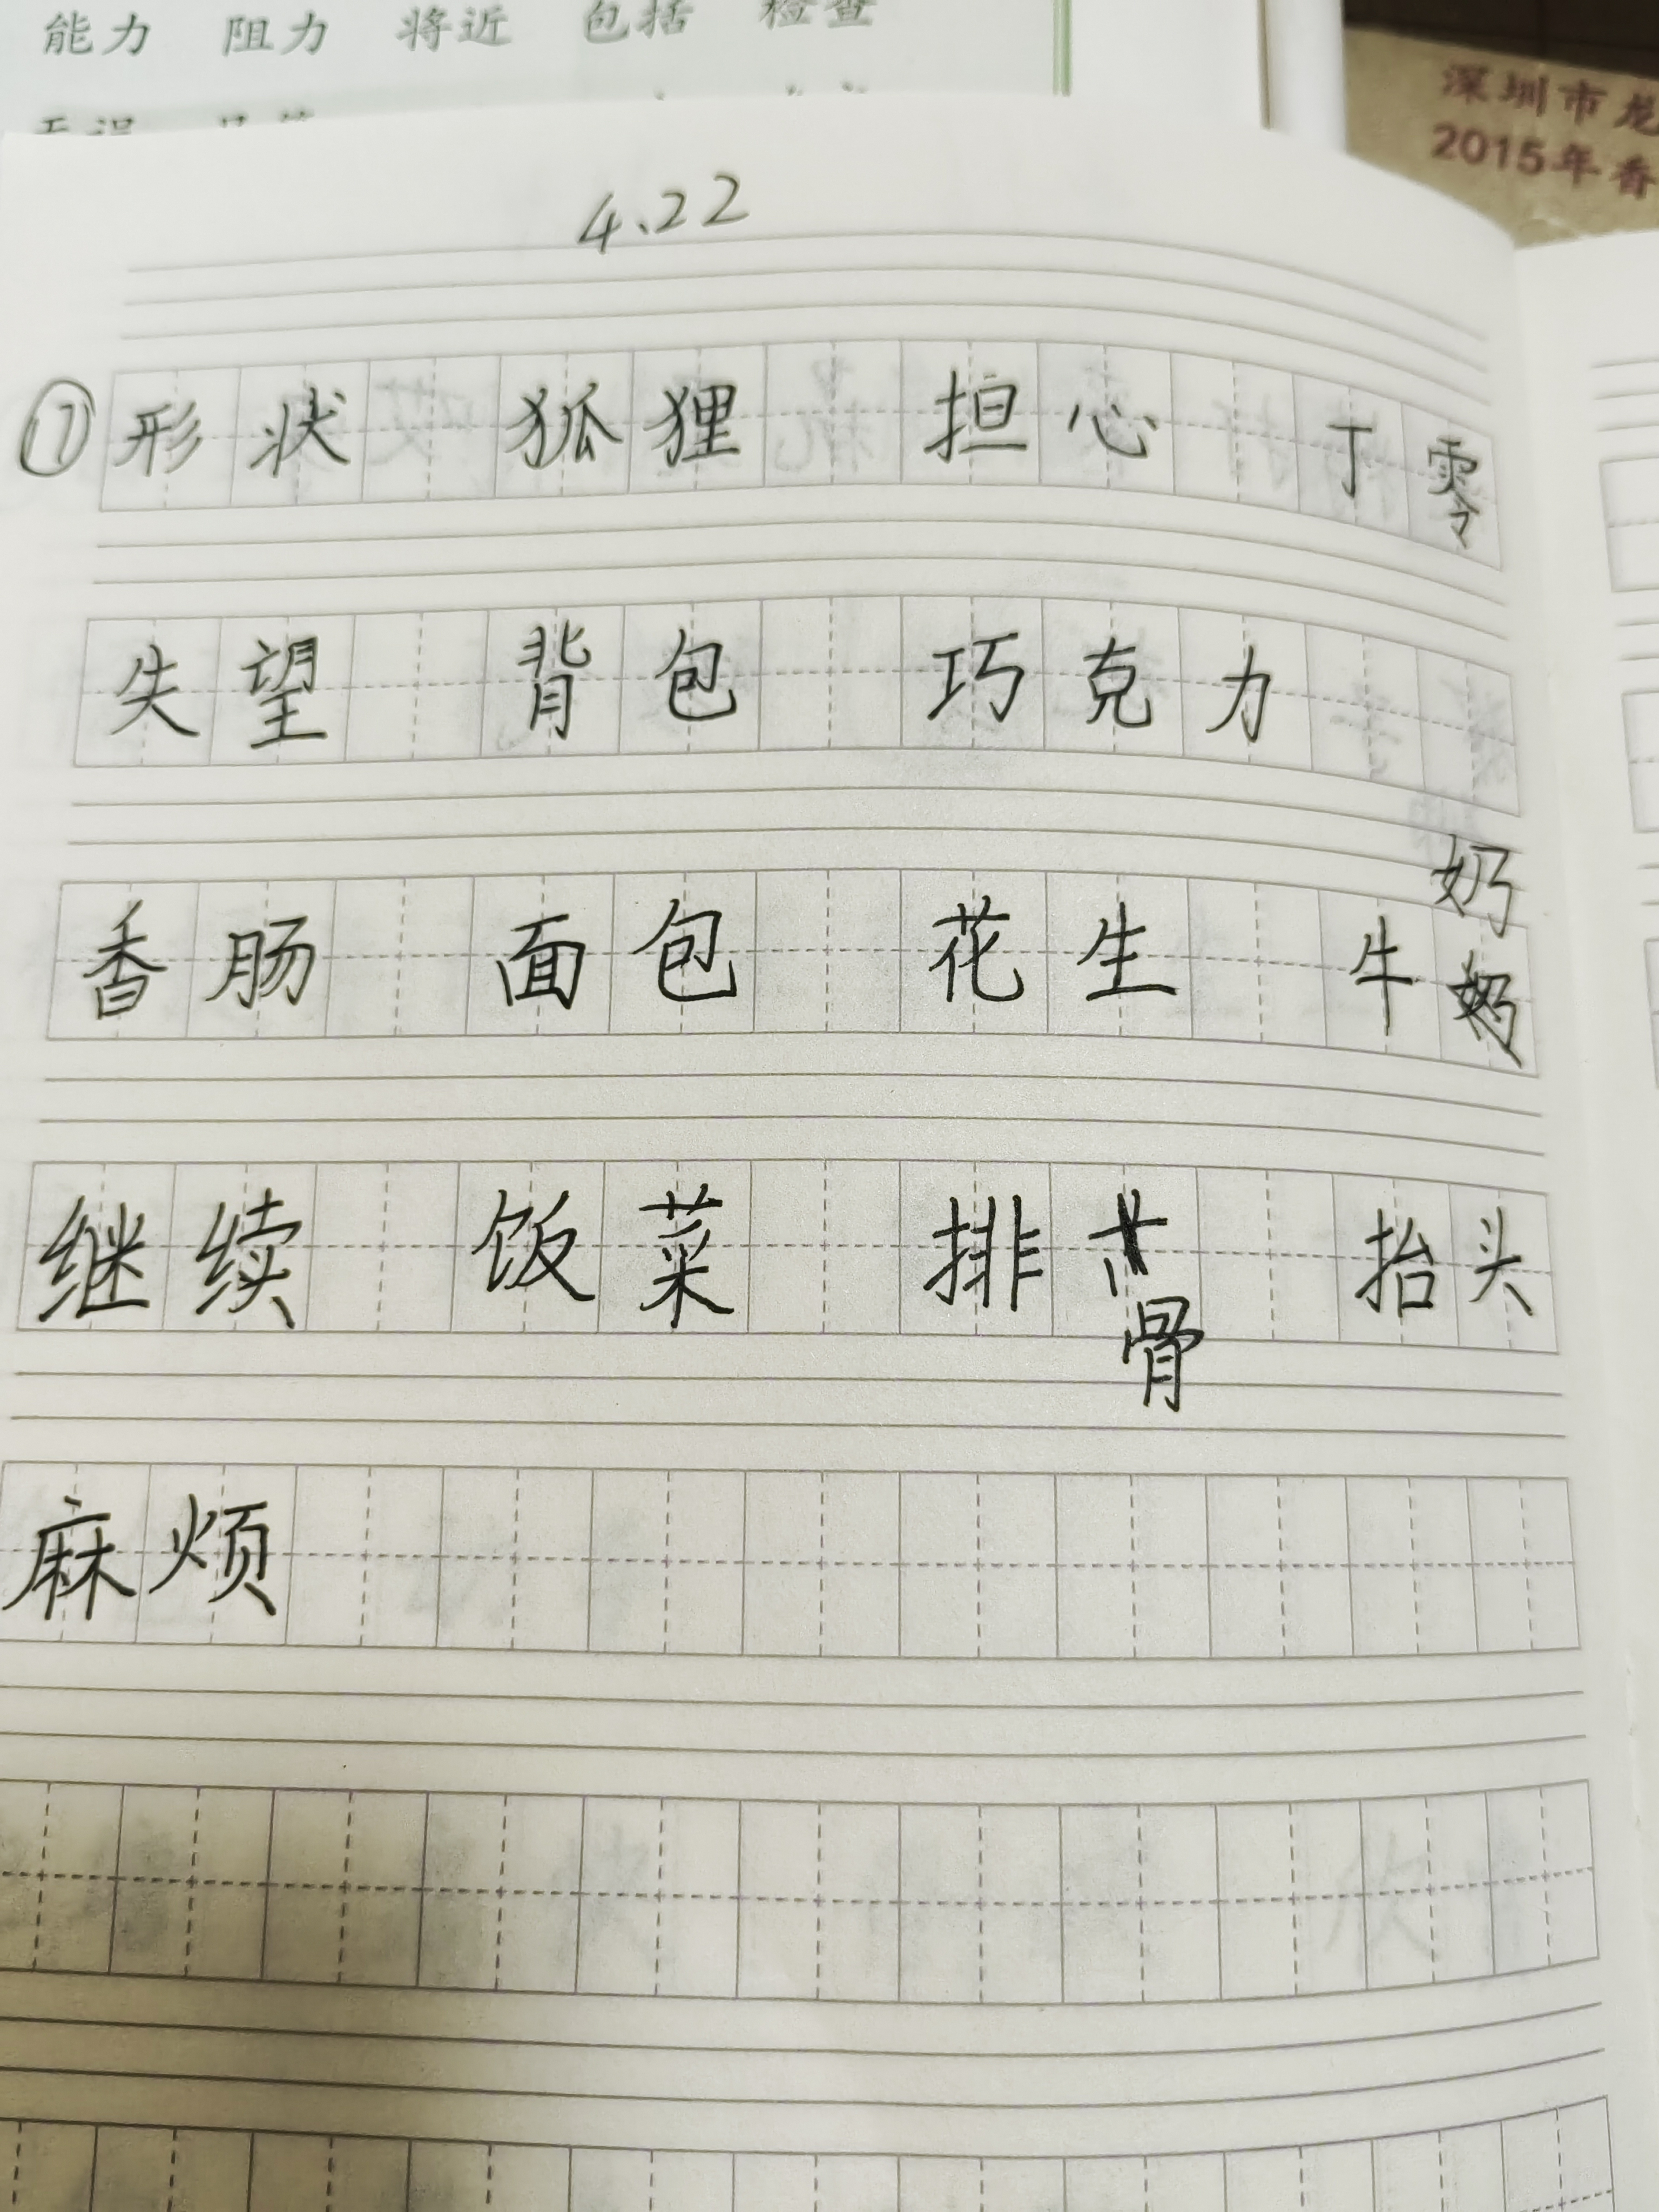 能力 阻力 将近 包括 检查
深圳市龙
2015年香
4.22
⑰ 形状 狐狸 担心 丁零
失望 背包 巧克力
香肠 面包 花生 牛奶
继续 饭菜 排骨 抬头
麻烦